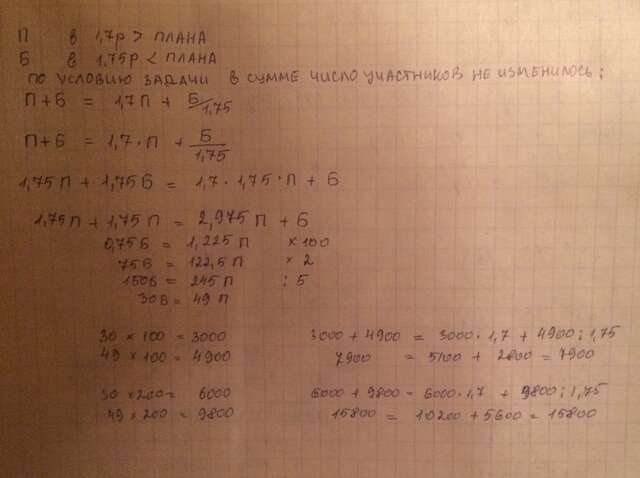 П в 1,7р > ПЛАНА
Б в 1,75р < ПЛАНА
ПО УСЛОВИЮ ЗАДАЧИ В СУММЕ ЧИСЛО УЧАСТНИКОВ НЕ ИЗМЕНИЛОСЬ:
П+Б = 1,7П + Б/1,75
П+Б = 1,7·П + Б/1,75
1,75П + 1,75Б = 1,7·1,75·П + Б
1,75П + 1,75П = 2,975П + Б
0,75Б = 1,225П ×100
75Б = 122,5П ×2
150Б = 245П :5
30Б = 49П
30 × 100 = 3000 3000 + 4900 = 3000·1,7 + 4900:1,75
49 × 100 = 4900 7900 = 5100 + 2800 = 7900
30 × 200 = 6000 6000 + 9800 = 6000·1,7 + 9800:1,75
49 × 200 = 9800 15800 = 10200 + 5600 = 15800